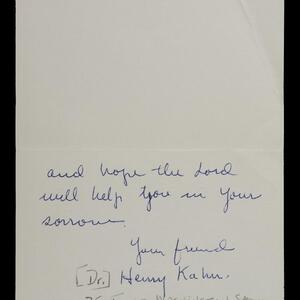 and hope the Lord
will help you in your
sorrow.
Your friend
[Dr.] Henry Kahn.